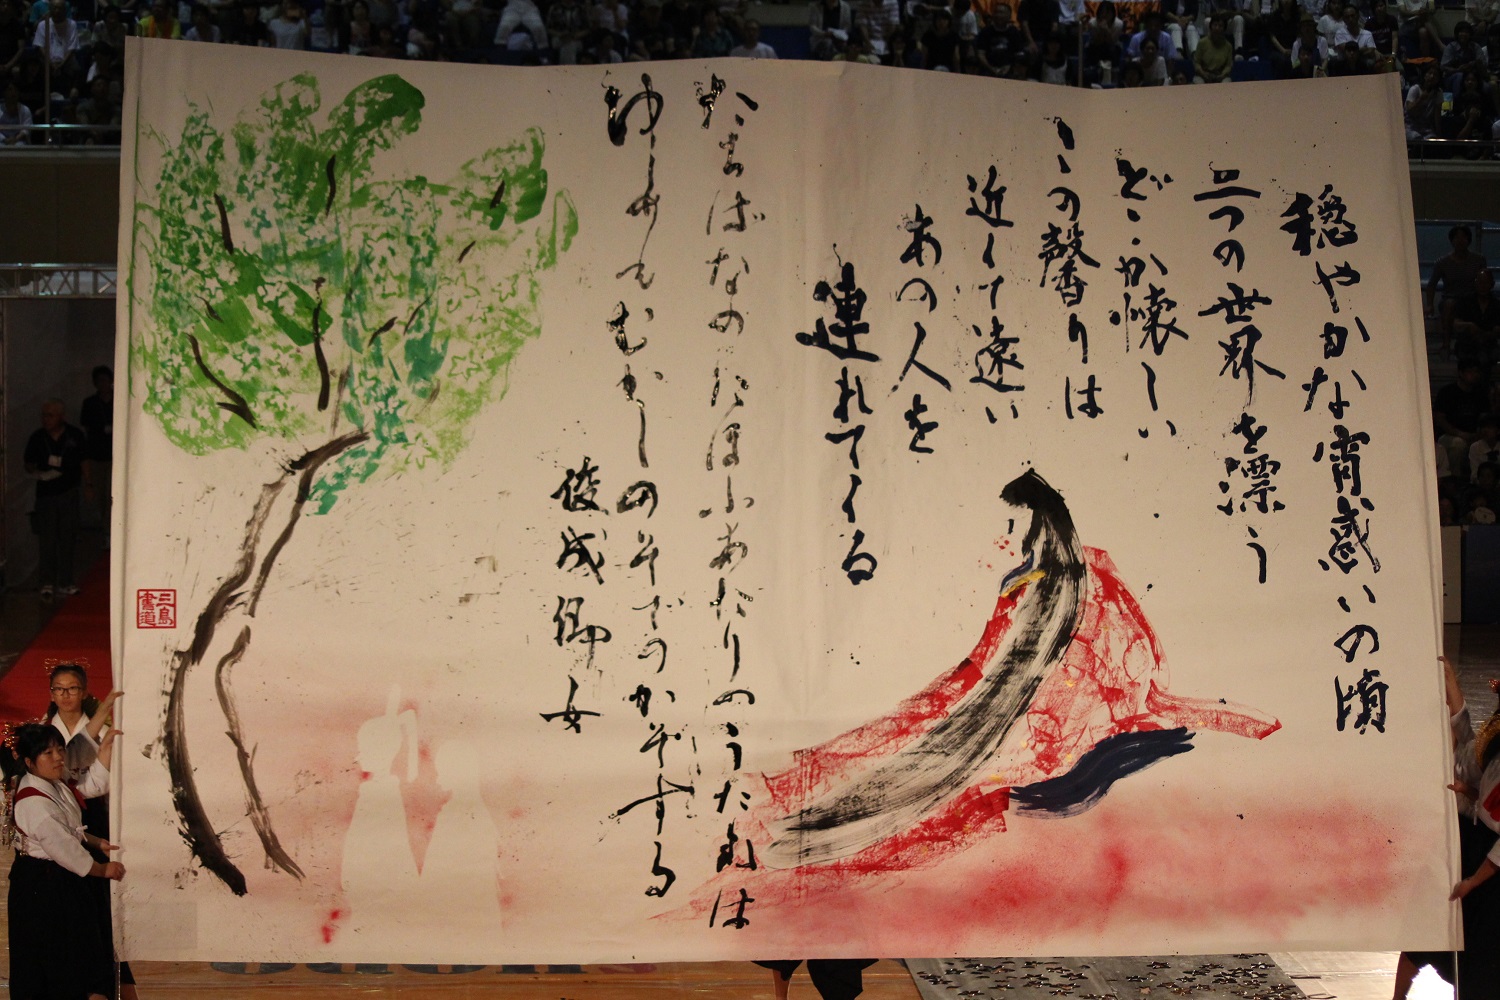 穏やかな宵惑いの頃
二つの世界を漂う
どこか懐しい
この馨りは
近くて遠い
あの人を
連れてくる
たちばなのにほふあたりのうたたねは
ゆめもむかしのそでのかぞする
俊成卿女
三島
書道